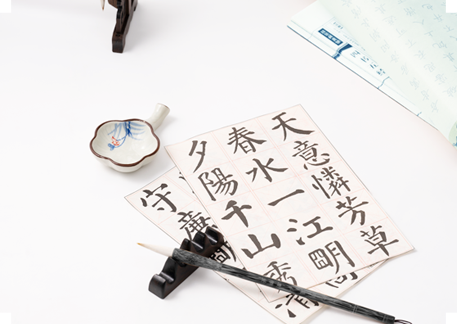 天意憐芳草
春水一江明
夕陽千山秀
守廉
清